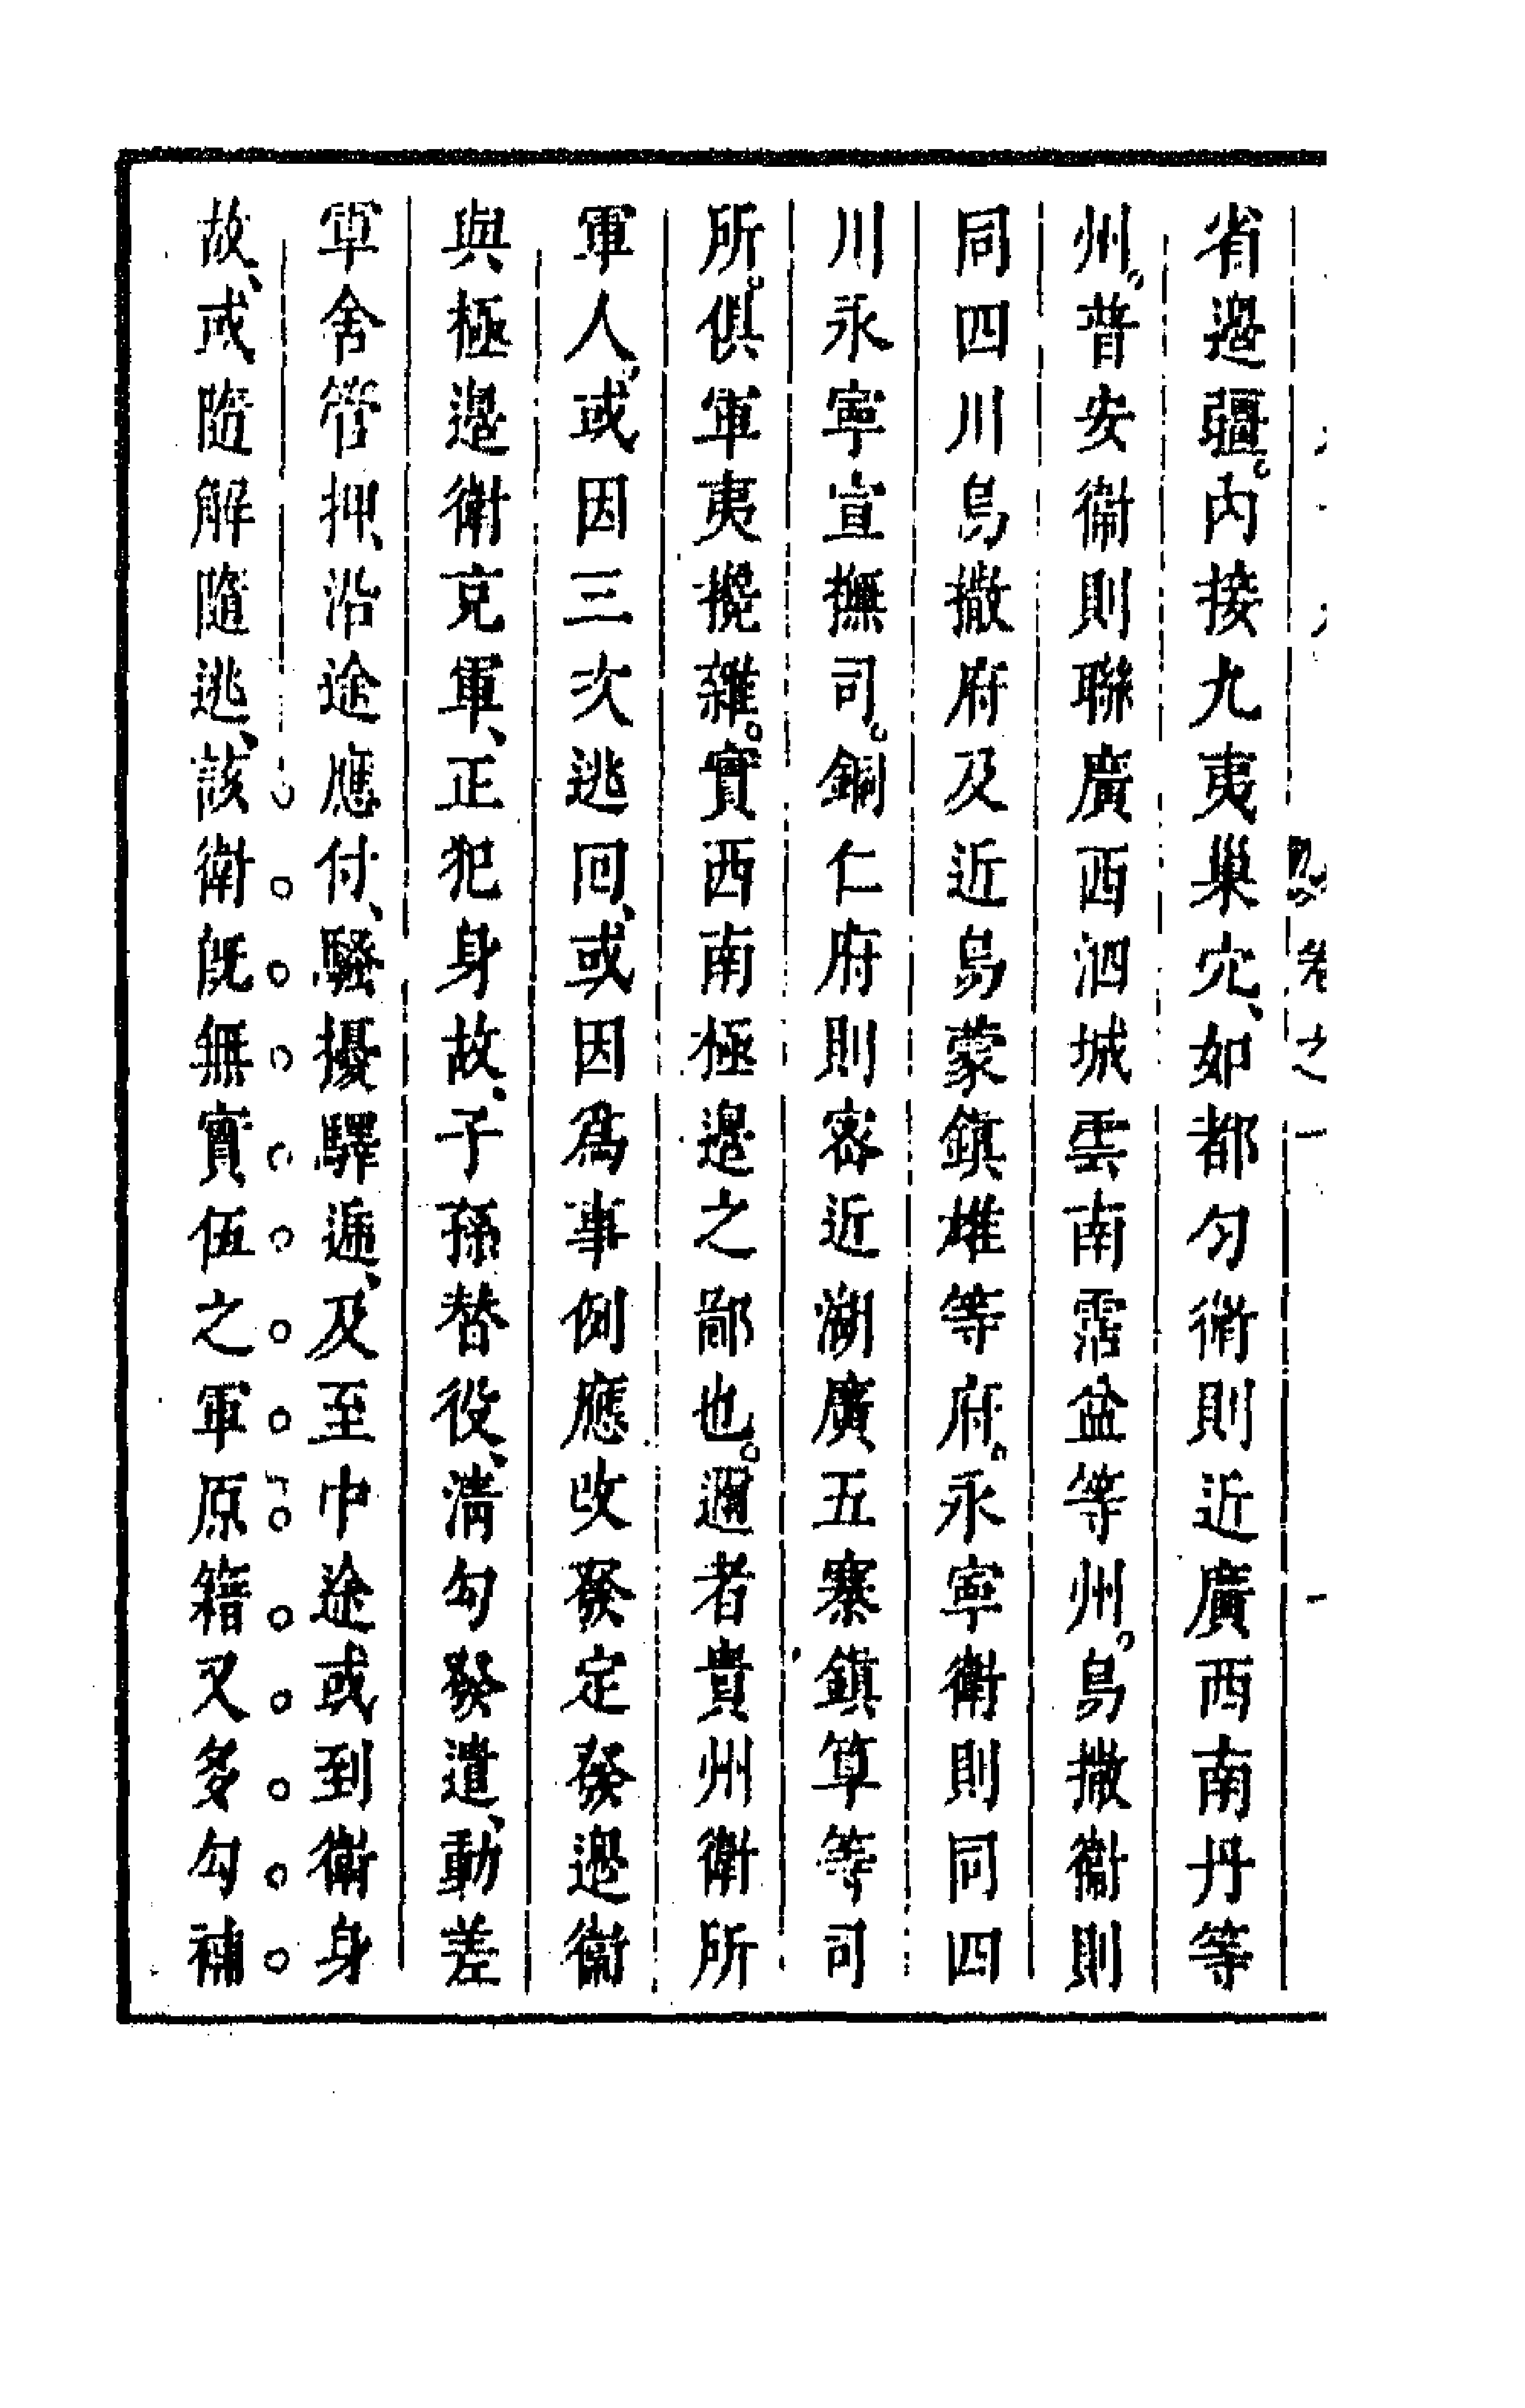 省邉疆。内接九夷巢穴、如都匀衛則近廣西南丹等
州。普安衞則聯廣西泗城雲南霑益等州。烏撒衞則
同四川烏撒府及近烏蒙鎮雄等府。永寧衛則同四
川永寧宣撫司。銅仁府則密近湖廣五寨鎮箄等司
所。俱軍夷攙雜。實西南極邉之鄙也。邇者貴州衛所
軍人、或因三次逃回、或因爲事例應改發定發邉衞
與極邉衛充軍、正犯身故、子孫替役、淸勾發遣、動差
軍舍管押、沿途應付、騷擾驛逓、及至中途或到衛身
故、或隨解隨逃、該衛旣無實伍之軍原籍又多勾補
卷之一